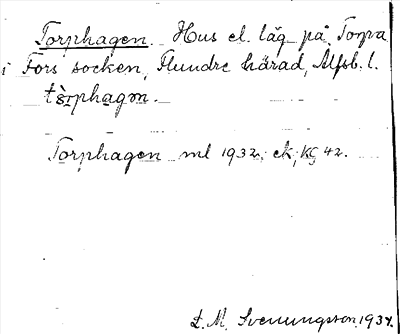 Torphagen. Hus el. läg på Torpa
i Fors socken, Flundre härad, Älfsb. l.
tòrphagən.
Torphagen ml 1932; ek; kg 42.
L. M. Svenungsson 1934.